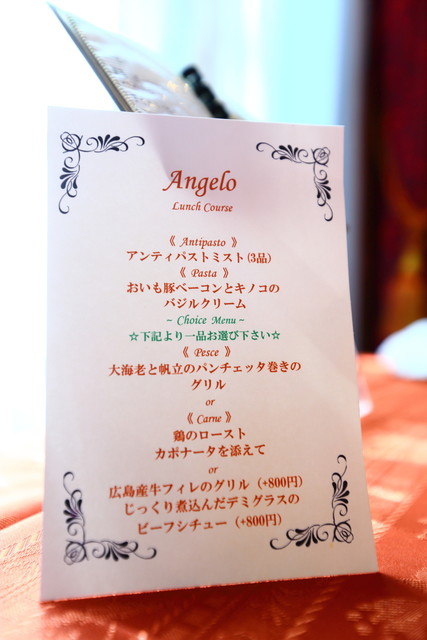 Angelo
Lunch Course
《 Antipasto 》
アンティパストミスト(3品)
《 Pasta 》
おいも豚ベーコンとキノコの
バジルクリーム
~ Choice Menu ~
☆下記より一品お選び下さい☆
《 Pesce 》
大海老と帆立のパンチェッタ巻きの
グリル
or
《 Carne 》
鶏のロースト
カポナータを添えて
or
広島産牛フィレのグリル（+800円）
じっくり煮込んだデミグラスの
ビーフシチュー（+800円）